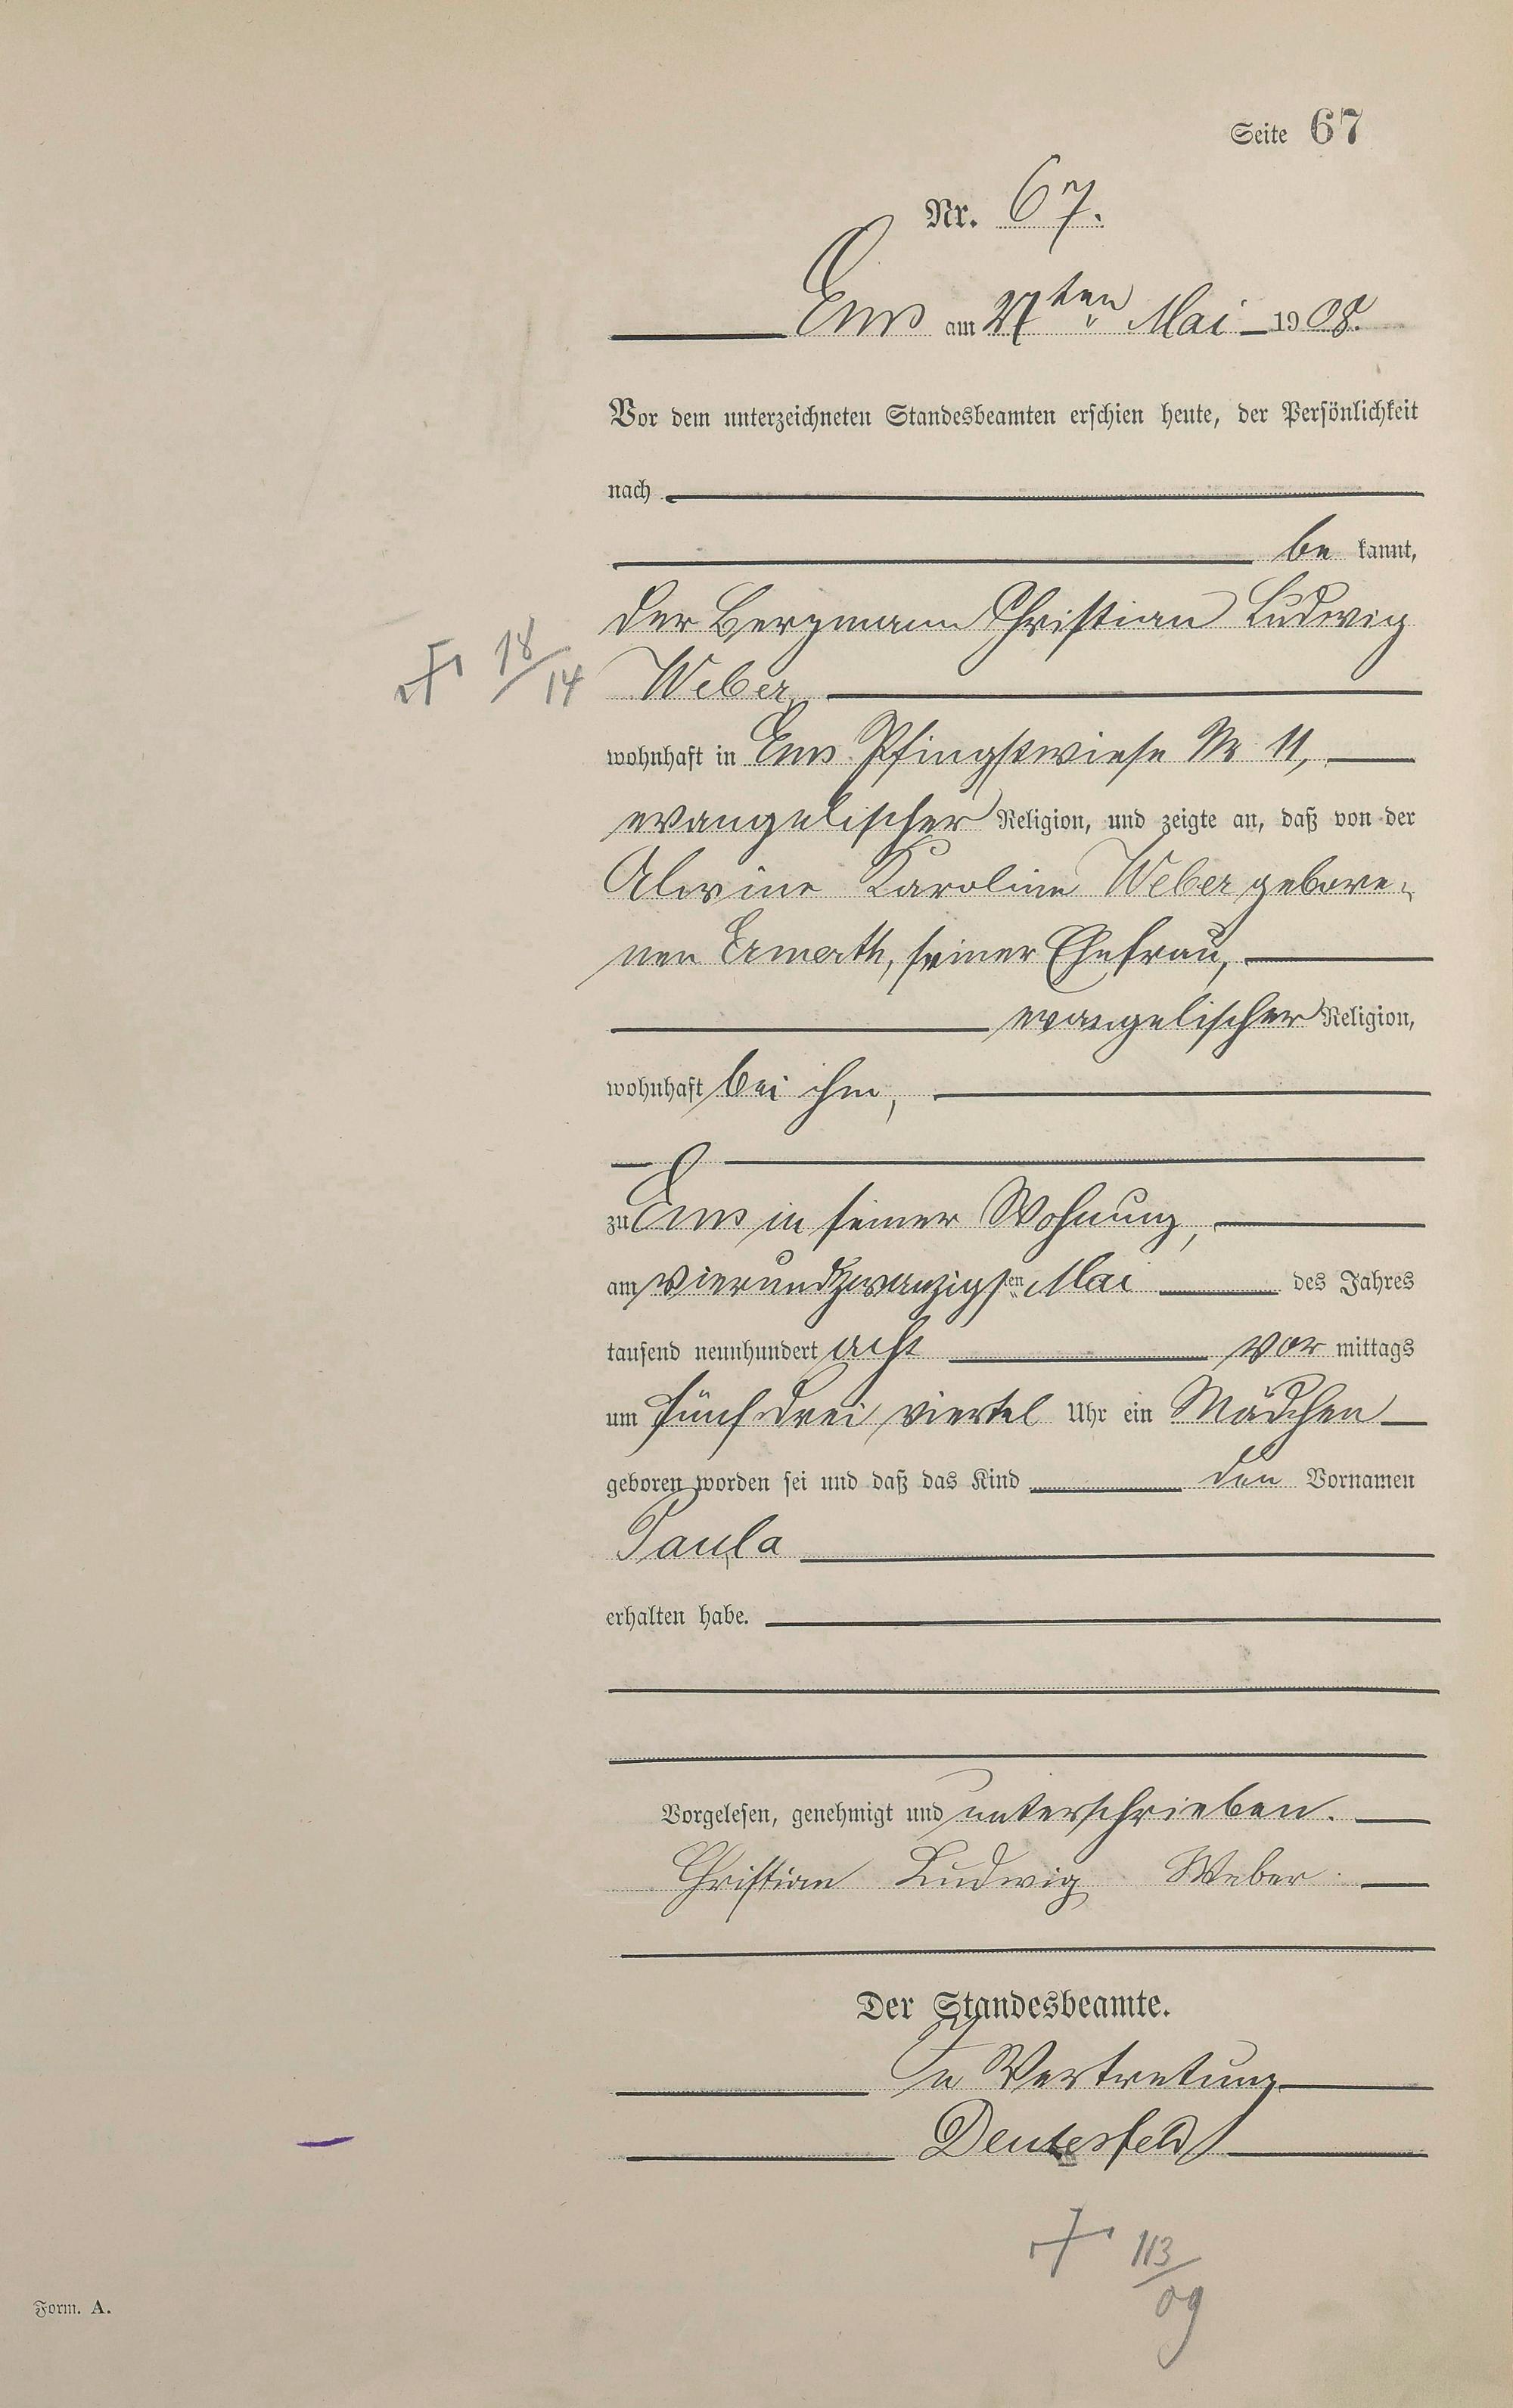 Seite 67
Nr. 67.
Ems am 27ten Mai 1908.
Vor dem unterzeichneten Standesbeamten erschien heute, der Persönlichkeit
nach
be kannt,
der Bergmann Christian Ludwig
† 18/14
Weber,
wohnhaft in Ems Pfingstwiese Nr 11,
evangelischer Religion, und zeigte an, daß von der
Alwine Karoline Weber gebore-
nen Ermath, seiner Ehefrau,
evangelischer Religion,
wohnhaft bei ihm,
zu Ems in seiner Wohnung,
am vierundzwanzigsten Mai des Jahres
tausend neunhundert acht vor mittags
um fünf drei viertel Uhr ein Mädchen
geboren worden sei und daß das Kind den Vornamen
Paula
erhalten habe.
Vorgelesen, genehmigt und unterschrieben.
Christian Ludwig Weber.
Der Standesbeamte.
In Vertretung
Deutesfeld
† 113/09
Form. A.